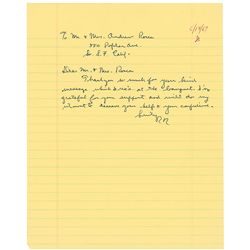 6/14/67
To Mr. & Mrs. Andrew Rocca
200 Poplar Ave
So. S.F. Calif.
Dear Mr. & Mrs. Rocca
Thank you so much for your kind
message which I rec'd at the banquet. I'm
grateful for your support and will do my
utmost to deserve your help & your confidence.
Sincerely
RR